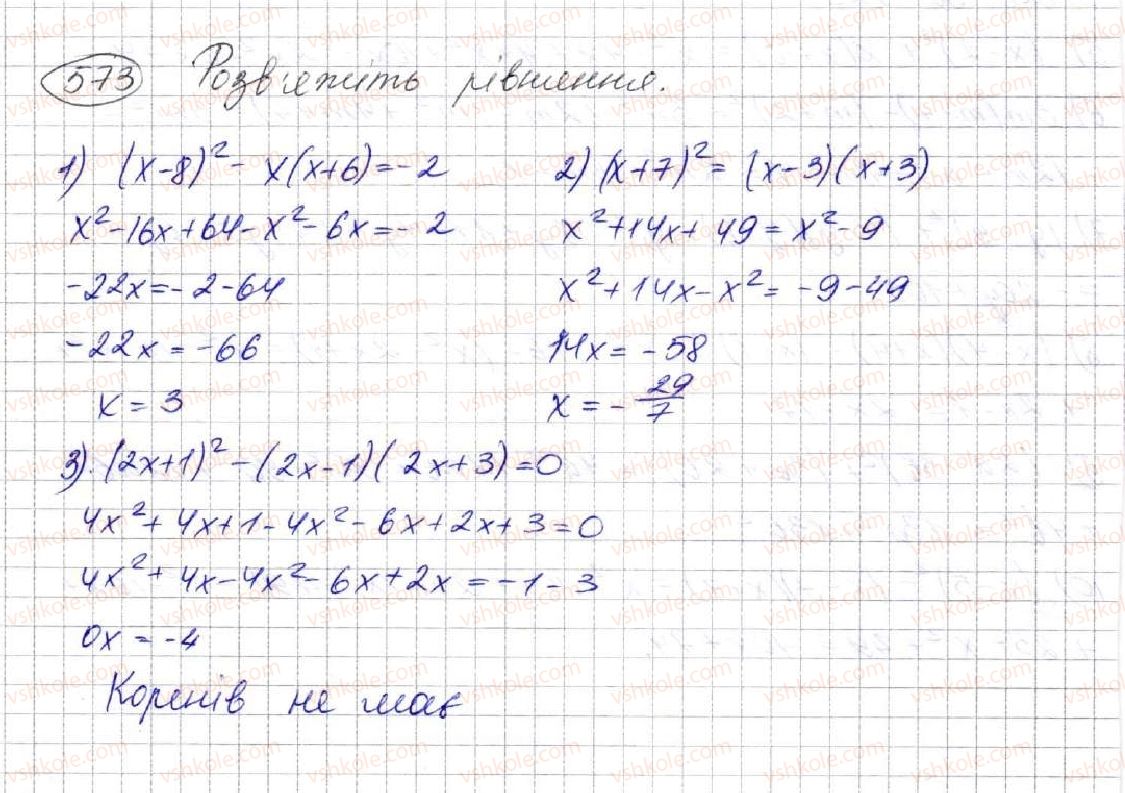 573 Розв'яжіть рівняння.
1) (x-8)² - x(x+6) = -2
x² - 16x + 64 - x² - 6x = -2
-22x = -2 - 64
-22x = -66
x = 3
2) (x+7)² = (x-3)(x+3)
x² + 14x + 49 = x² - 9
x² + 14x - x² = -9 - 49
14x = -58
x = -29/7
3). (2x+1)² - (2x-1)(2x+3) = 0
4x² + 4x + 1 - 4x² - 6x + 2x + 3 = 0
4x² + 4x - 4x² - 6x + 2x = -1 - 3
0x = -4
Коренів не має